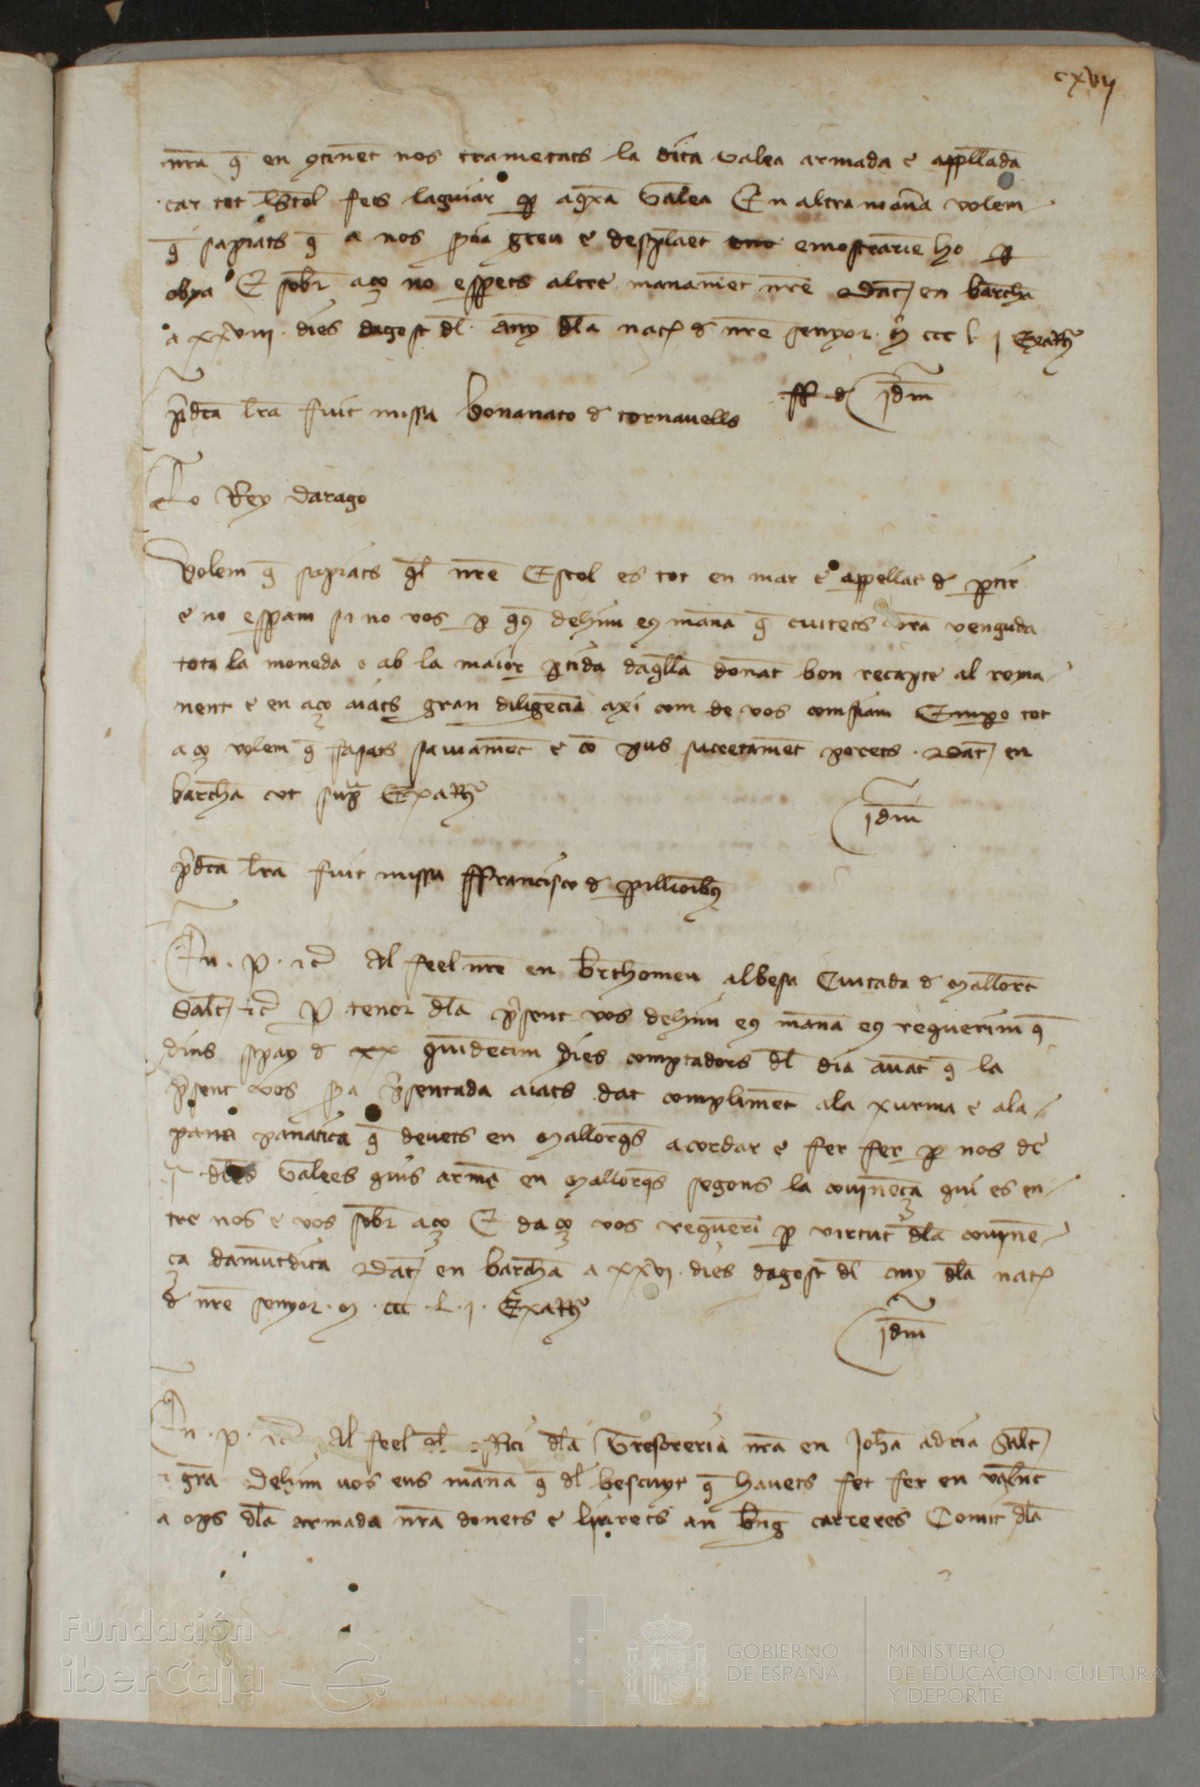 cxvij
nr̃a q̃ en ꝯtinẽt nos trametats la dita Galea armada e appellada
car tot lestol fets laguiar ꝑ aq̃xa Galea En altra man̄a volem
q̃ sapiats q̃ a nos sĩa greu e desplaẽt e mostrariẽ ho ꝑ
obra E sobr̃ aço no esperets altre manamẽt nr̃e Dat̃ en barch̃a
a xxviii dies dagost dl̃ any dl̃a nat̃ d̃ nr̃e senyor M ccc L j Exar̃
idm̃
p̃dc̃a lr̃a fuit missa bonanato d̃ tornauells
Lo Rey darago
Volem q̃ sapiats ql̃ nr̃e Estol es tot en mar e appellat d̃ ptir
e no esperam si no vos ꝑ q̃ dehim eꝰ manã q̃ cuitets vr̃a venguda
tota la moneda o ab la maior ꝑtida daq̃lla donãt bon recapte al roma
nent e en aço aiats gran diligẽcia axi com de vos confiam Empo tot
aço volem q̃ façats sauiamẽt e cõ pus sucretamẽt porets Dat̃ en
barch̃a ut sup̃ Exar̃
idm̃
p̃dc̃a lr̃a fuit missa ffrancisco d̃
En P etc̃ Al feel nr̃e en brthomeu albesa Ciutada d̃ Mallorc̃
Salt̃ etc̃ P tenor dl̃a p̃sent vos dehim eꝰ manã eꝰ requerim q̃
dins espay d̃ xx quindecim dies comptadors dl̃ dia auãt q̃ la
p̃sent vos sĩa p̃sentada aiats dat complimẽt ala xurma e ala
pana panatica q̃ deuets en Mallorq̃s acordar e fer fer ꝑ nos d̃
dl̃es Galees quis armẽ en Mallorq̃s segons la couinẽça qui es en
tre nos e vos sobr̃ aço E daço vos requeri ꝑ virtut dl̃a couinẽ
ça damũtdita Dat̃ en barch̃a a xxvi dies dagost dl̃ any dl̃a nat̃
d̃ nr̃e senyor M ccc L j Exar̃
idm̃
En P etc̃ Al feel dl̃ offici dl̃a Tresoreria nr̃a en Joh̃a adria Salt̃
e gr̃a Dehim uos eus manã q̃ dl̃ bescuyt q̃ hauets fet fer en valẽc̃
a ops dl̃a armada nr̃a donets e liurets an bñg carreres Comit dl̃a
Fundación
iberCaja
GOBIERNO
DE ESPAÑA
MINISTERIO
DE EDUCACIÓN, CULTURA
Y DEPORTE